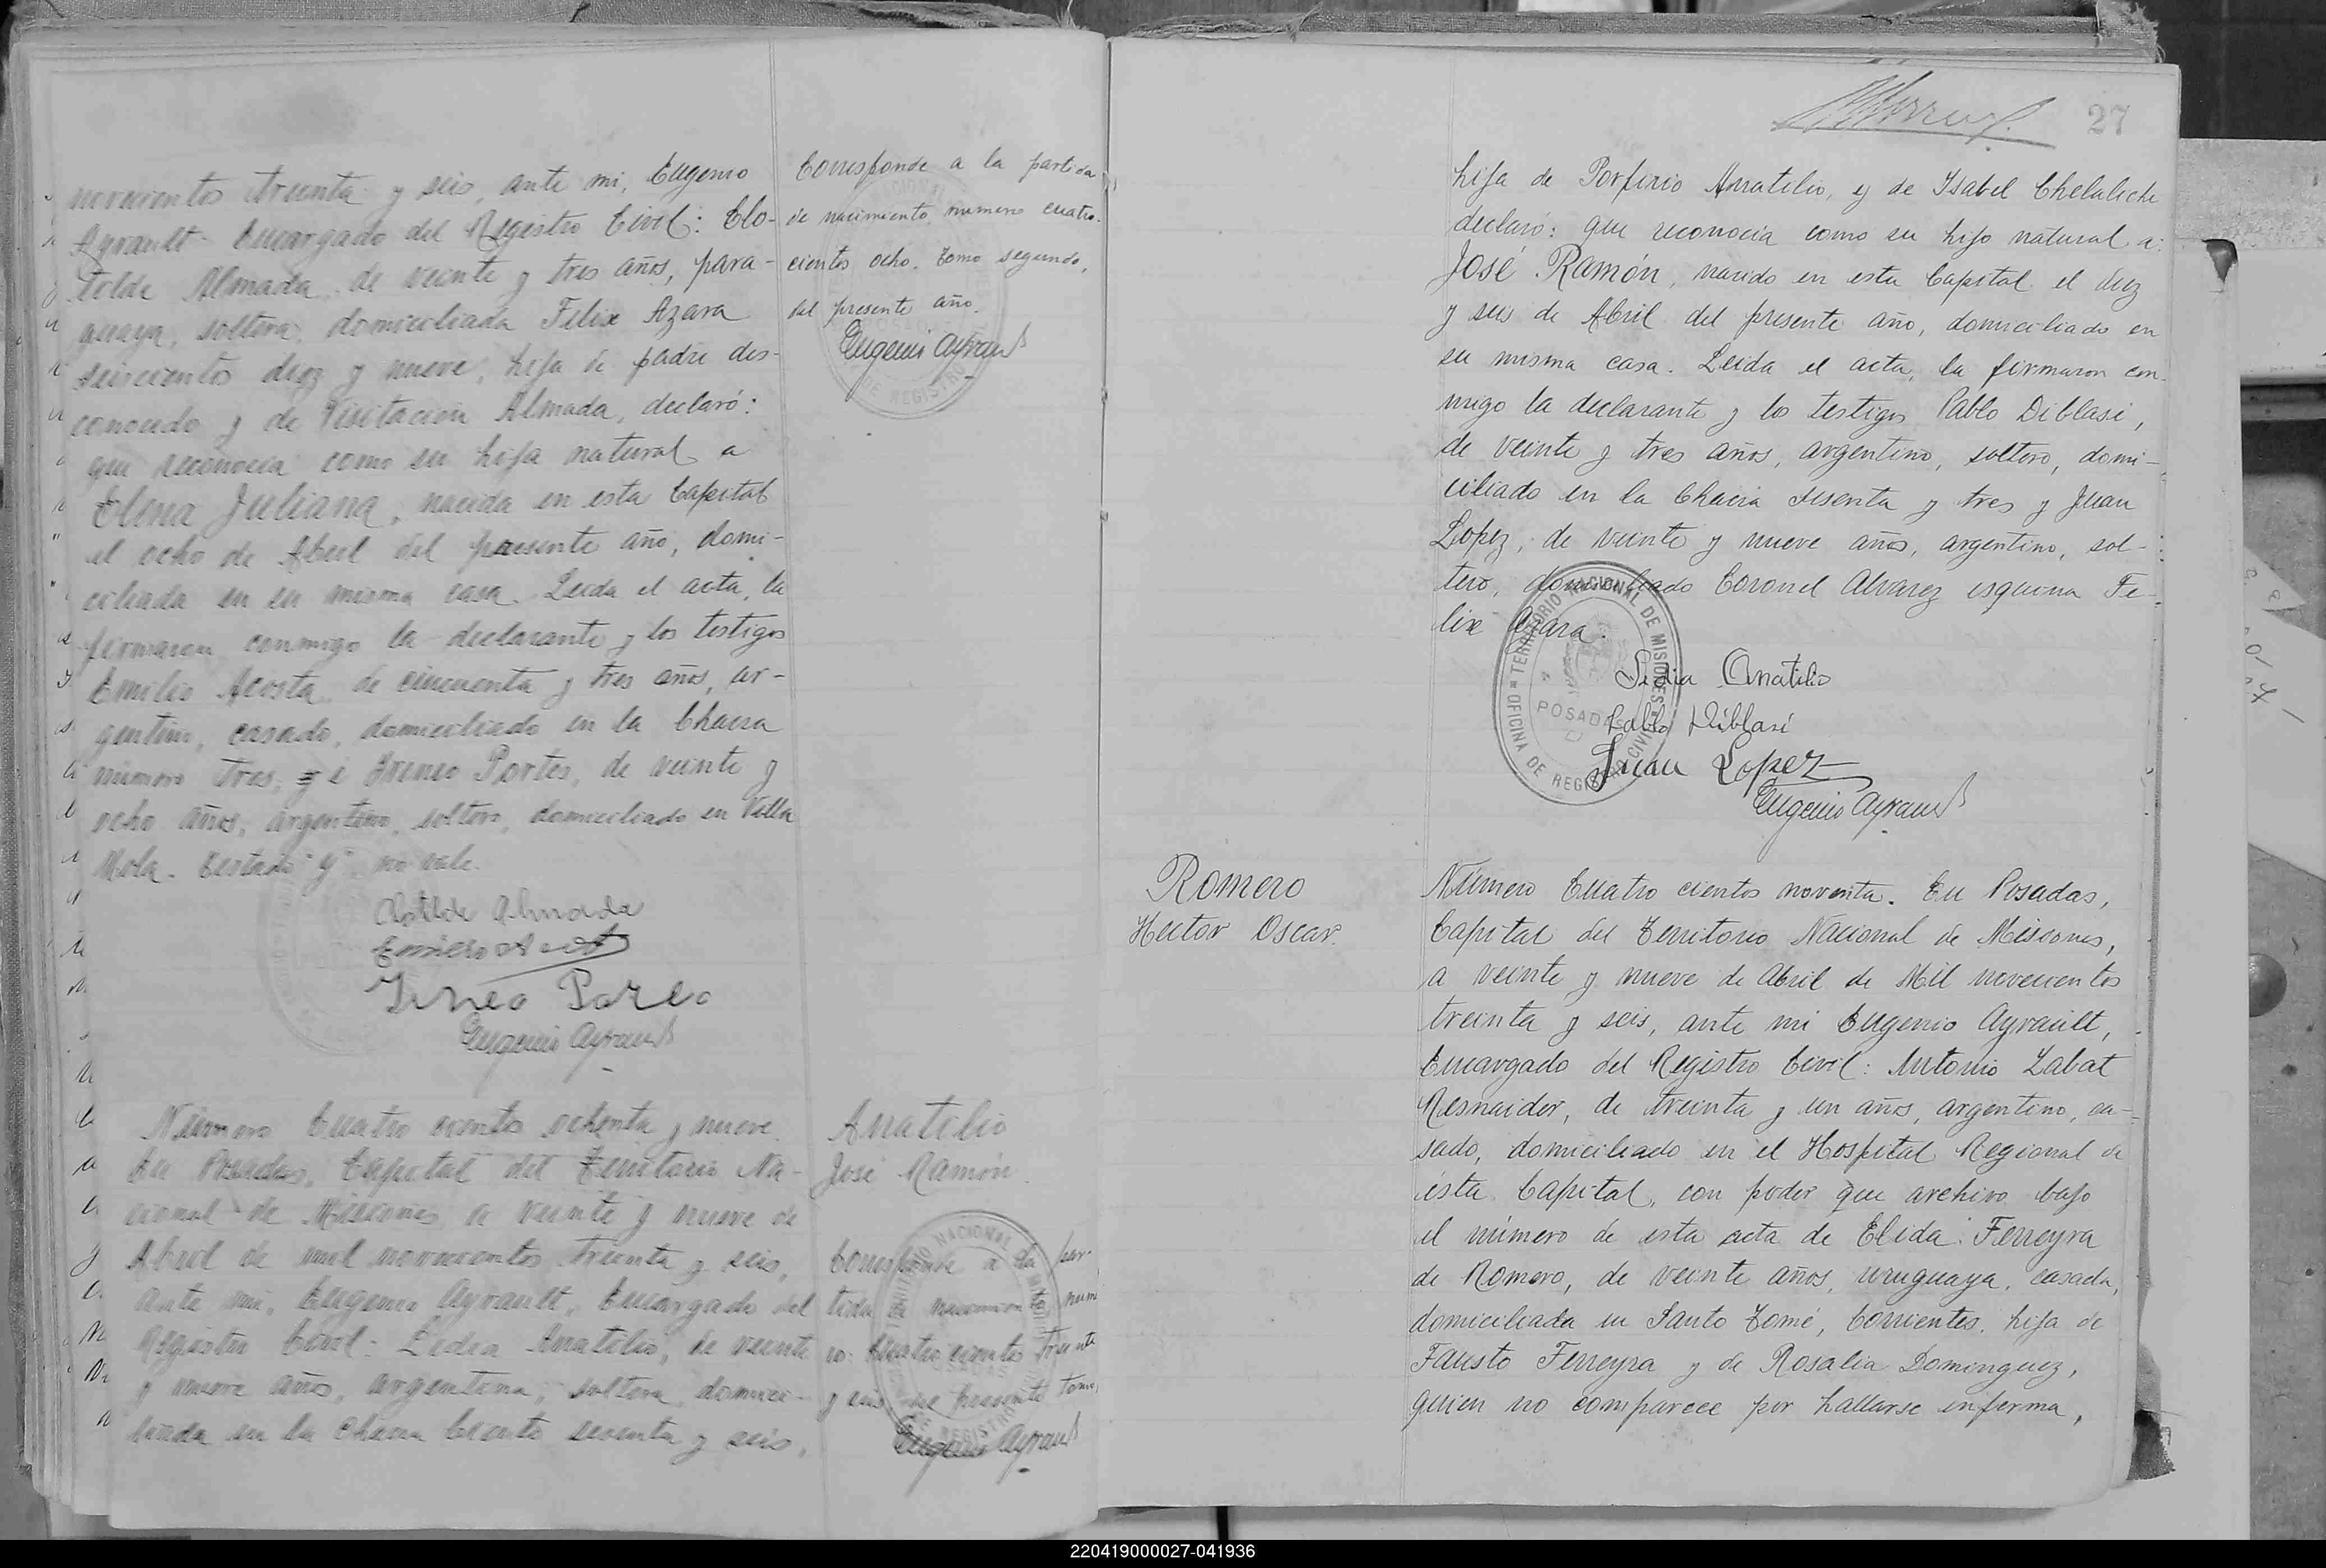 novecientos treinta y seis, ante mi, Eugenio
Ayrault Encargado del Registro Civil: Clo-
tolde Almada, de veinte y tres años, para-
guaya, soltera, domiciliada Felix Azara
seiscientos diez y nueve, hija de padre des-
conocido y de Visitación Almada, declaró:
que reconocia como su hija natural a
Elena Juliana, nacida en esta Capital
el ocho de Abril del presente año, domi-
ciliada en su misma casa. Leida el acta, la
firmaron conmigo la declarante y los testigos
Emilio Acosta, de cincuenta y tres años, ar-
gentino, casado, domiciliado en la Chacra
número tres, y é Ireneo Portes, de veinte y
ocho años, argentino, soltero, domiciliado en Villa
Mola. Testado "y" no vale.
Clotilde Almada
Ireneo
Eugenio Ayrault
Corresponde a la partida
de nacimiento, numero cuatro-
cientos ocho, tomo segundo,
del presente año.
Eugenio Ayrault
Número Cuatro cientos ochenta y nueve.
En Posadas, Capital del Territorio Na-
cional de Misiones, a veinte y nueve de
Abril de mil novecientos treinta y seis,
ante mi, Eugenio Ayrault, Encargado del
Registro Civil: Lidia Anatilio, de veinte
y nueve años, argentina, soltera, domici-
liada en la Chacra Ciento sesenta y seis,
Anatilio
José Ramón
Corresponde a la par-
tida de nacimiento, núme-
ro: Cuatro cientos treinta
y seis, del presente tomo,
Eugenio Ayrault
27
hija de Porfirio Anatilio, y de Isabel Chelaliche
declaró: que reconocia como su hijo natural a:
José Ramón, nacido en esta Capital el diez
y seis de Abril del presente año, domiciliado en
su misma casa. Leida el acta, la firmaron con-
migo la declarante y los testigos Pablo Diblasi,
de veinte y tres años, argentino, soltero, domi-
ciliado en la Chacra sesenta y tres y Juan
Lopez, de veinte y nueve años, argentino, sol-
tero, domiciliado Coronel Alvarez esquina Fe-
lix Azara.
TERRITORIO NACIONAL DE MISIONES
POSADAS
OFICINA DE REGISTRO CIVIL
Lidia Anatilio
Pablo Diblasi
Juan Lopez
Eugenio Ayrault
Romero
Hector Oscar.
Número Cuatro cientos noventa. En Posadas,
Capital del Territorio Nacional de Misiones,
a veinte y nueve de Abril de Mil novecientos
treinta y seis, ante mi Eugenio Ayrault,
Encargado del Registro Civil: Antonio Labat
Resnaider, de treinta y un años, argentino, ca-
sado, domiciliado en el Hospital Regional de
ésta Capital, con poder que archivo bajo
el número de esta acta de Elida Ferreyra
de Romero, de veinte años, uruguaya, casada,
domiciliada en Santo Tomé, Corrientes, hija de
Fausto Ferreyra y de Rosalia Dominguez,
quien no comparece por hallarse enferma,
220419000027-041936